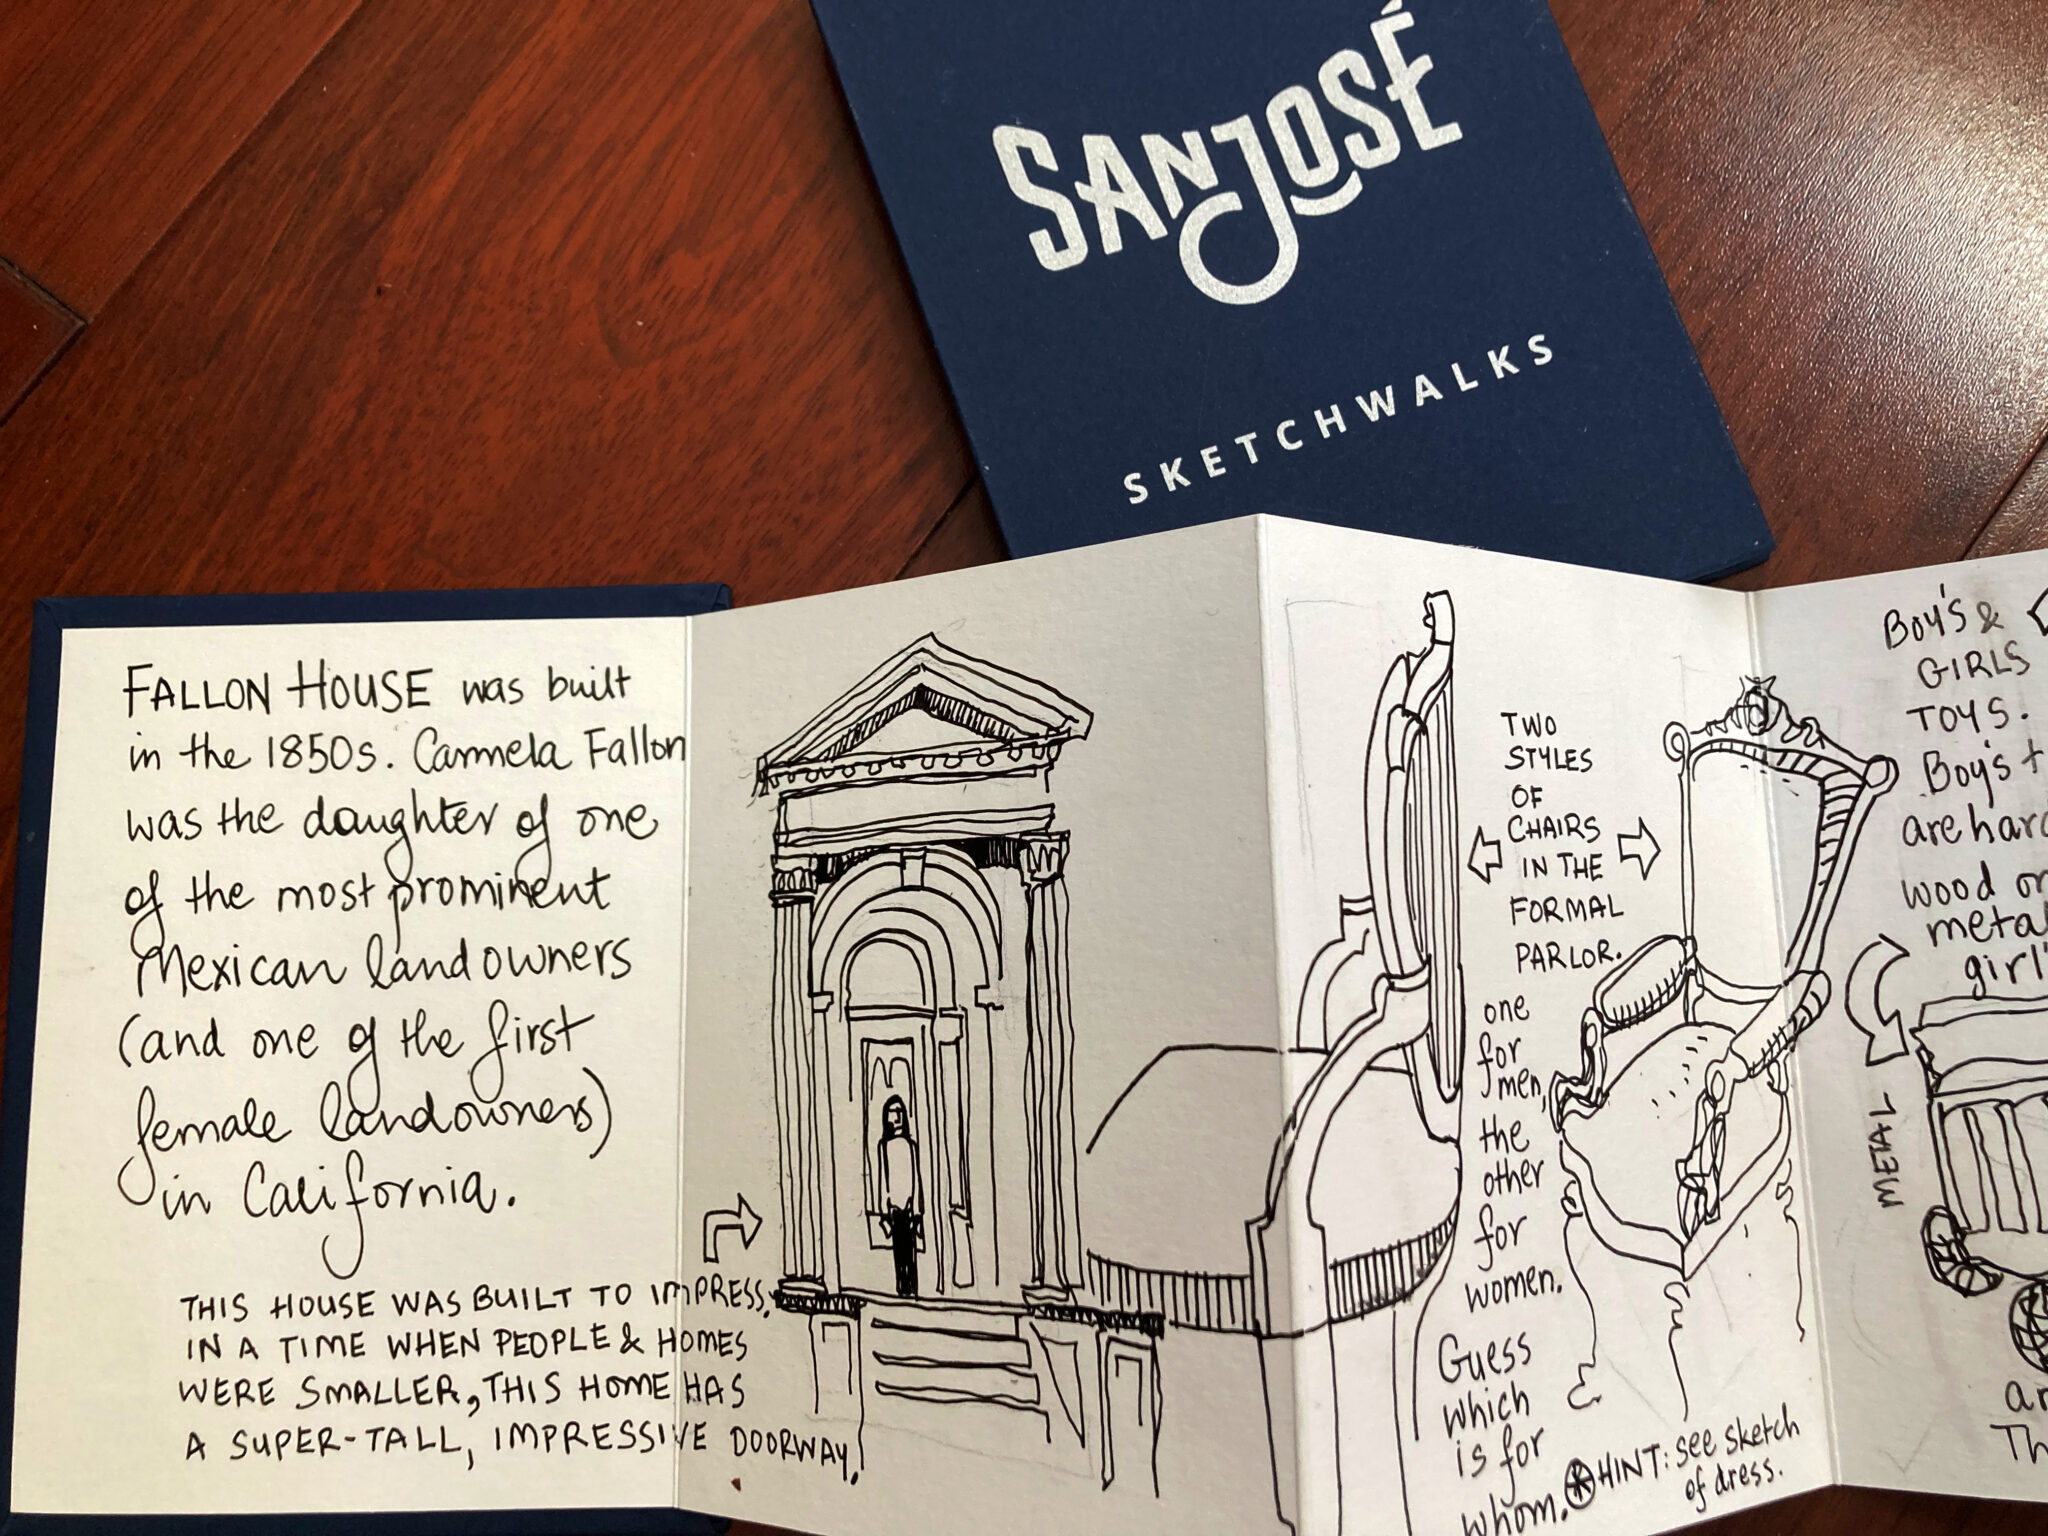 SANJOSÉ
SKETCHWALKS
FALLON HOUSE was built
in the 1850s. Carmela Fallon
was the daughter of one
of the most prominent
Mexican landowners
(and one of the first
female landowners)
in California.
THIS HOUSE WAS BUILT TO IMPRESS.
IN A TIME WHEN PEOPLE & HOMES
WERE SMALLER, THIS HOME HAS
A SUPER-TALL, IMPRESSIVE DOORWAY.
TWO
STYLES
OF
CHAIRS
IN THE
FORMAL
PARLOR.
one
for
men,
the
other
for
women.
Guess
which
is for
whom.
HINT: see sketch
of dress.
BOY'S &
GIRLS
TOYS.
Boy's +
are har
wood or
meta
girl'
METAL
an
Th